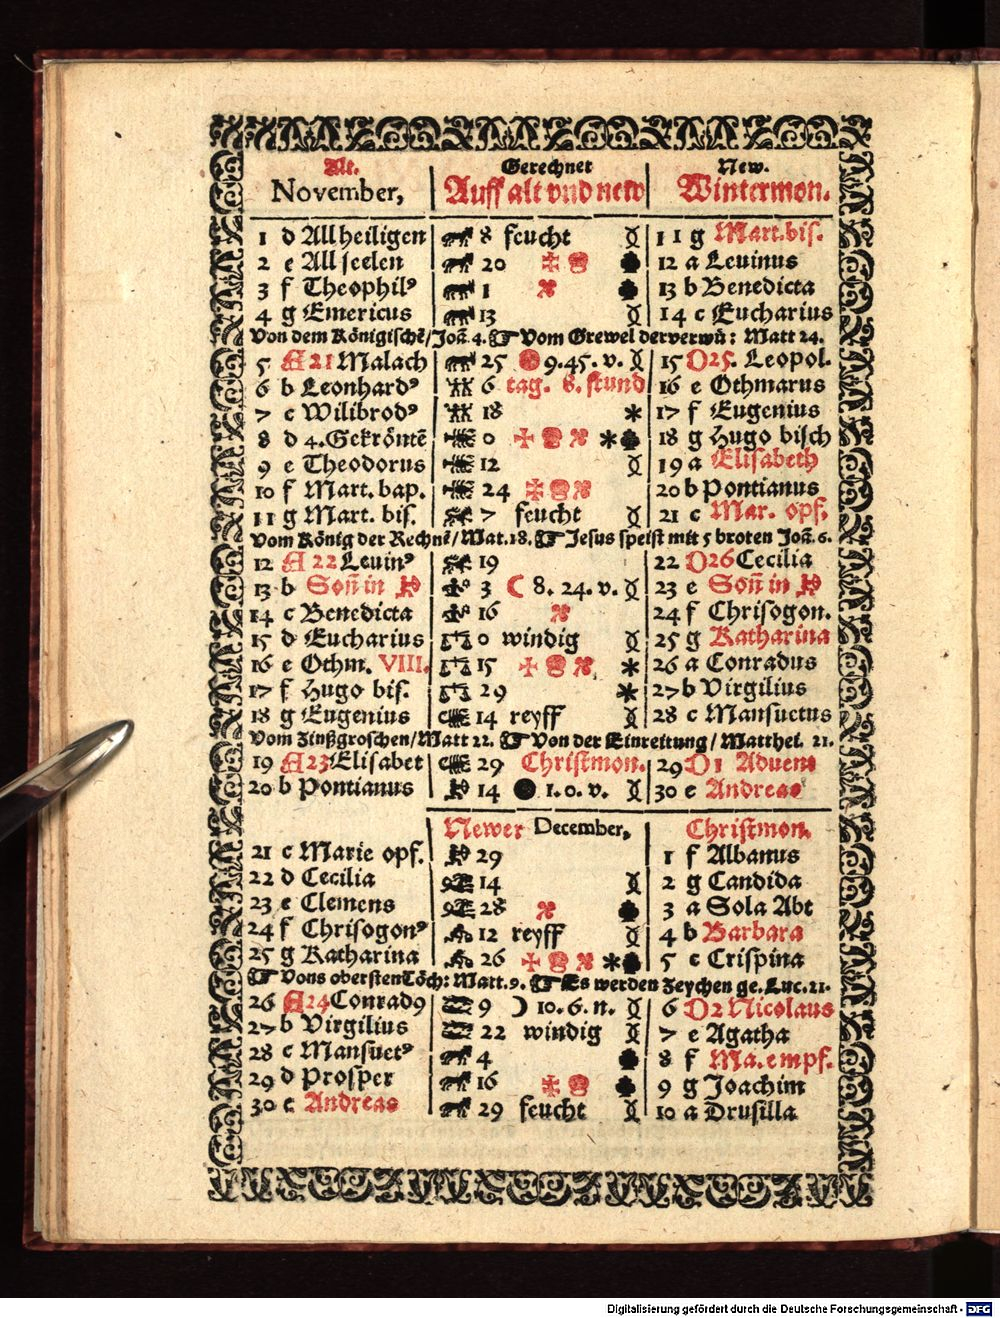 Alt. Gerechnet New.
November, Auff alt vnd new Wintermon.
1 d Allheiligen 8 feucht 11 g Mart. bis.
2 e All seelen 20 12 a Leuinus
3 f Theophilꝰ 1 13 b Benedicta
4 g Emericus 13 14 c Eucharius
Von dem Königischē/Joā. 4. ☞ Vom Grewel der verwü: Matt 24.
5 A 21 Malach 25 9. 45. v. 15 D 25. Leopol.
6 b Leonhardꝰ 6 tag. 8. stund 16 e Othmarus
7 c Wilibrodꝰ 18 * 17 f Eugenius
8 d 4. Gekröntē 0 * 18 g Hugo bisch
9 e Theodorus 12 19 a Elisabeth
10 f Mart. bap. 24 20 b Pontianus
11 g Mart. bis. 7 feucht 21 c Mar. opf.
Vom König der Rechnē/Mat. 18. ☞ Jesus speist mit 5 broten Joā. 6.
12 A 22 Leuinꝰ 19 22 D 26 Cecilia
13 b Soñ in ♐ 3 ☾ 8. 24. v. 23 e Soñ in ♐
14 c Benedicta 16 24 f Chrisogon.
15 d Eucharius 0 windig 25 g Katharina
16 e Othm. VIII. 15 * 26 a Conradus
17 f Hugo bis. 29 * 27 b Virgilius
18 g Eugenius 14 reyff 28 c Mansuetus
Vom Zinßgroschen/Matt 22. ☞ Von der Einreitung/Matthei. 21.
19 A 23 Elisabet 29 Christmon. 29 D 1 Aduent
20 b Pontianus 14 ● 1. 0. v. 30 e Andreas
Newer December, Christmon.
21 c Marie opf. 29 1 f Albanus
22 d Cecilia 14 2 g Candida
23 e Clemens 28 3 a Sola Abt
24 f Chrisogonꝰ 12 reyff 4 b Barbara
25 g Katharina 26 * 5 c Crispina
☞ Vons obersten Töch: Matt. 9. ☞ Es werden Zeychen ge. Luc. 21.
26 A 24 Conradꝰ 9 ☽ 10. 6. n. 6 D 2 Nicolaus
27 b Virgilius 22 windig 7 e Agatha
28 c Mansuetꝰ 4 8 f Ma. empf.
29 d Prosper 16 9 g Joachim
30 e Andreas 29 feucht 10 a Drusilla
Digitalisierung gefördert durch die Deutsche Forschungsgemeinschaft - DFG